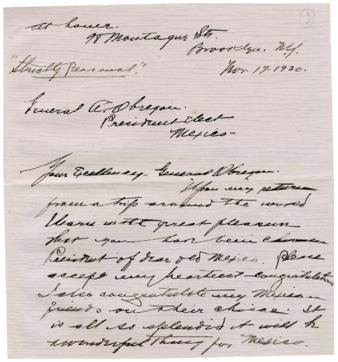 at home.
98 Montague St.
Brooklyn. N.Y.
"Strictly Personal."
Nov. 17-1920.
General A. Obregon.
President Elect
Mexico-
Your Excellency. General Obregon.
Upon my return
from a trip around the world
I learn with great pleasure
that you have been chosen
President of dear old Mexico. Please
accept my heartiest congratulations
I also congratulate my Mexican
friends on their choice. It
is all so splendid it will be
a wonderful thing for Mexico.